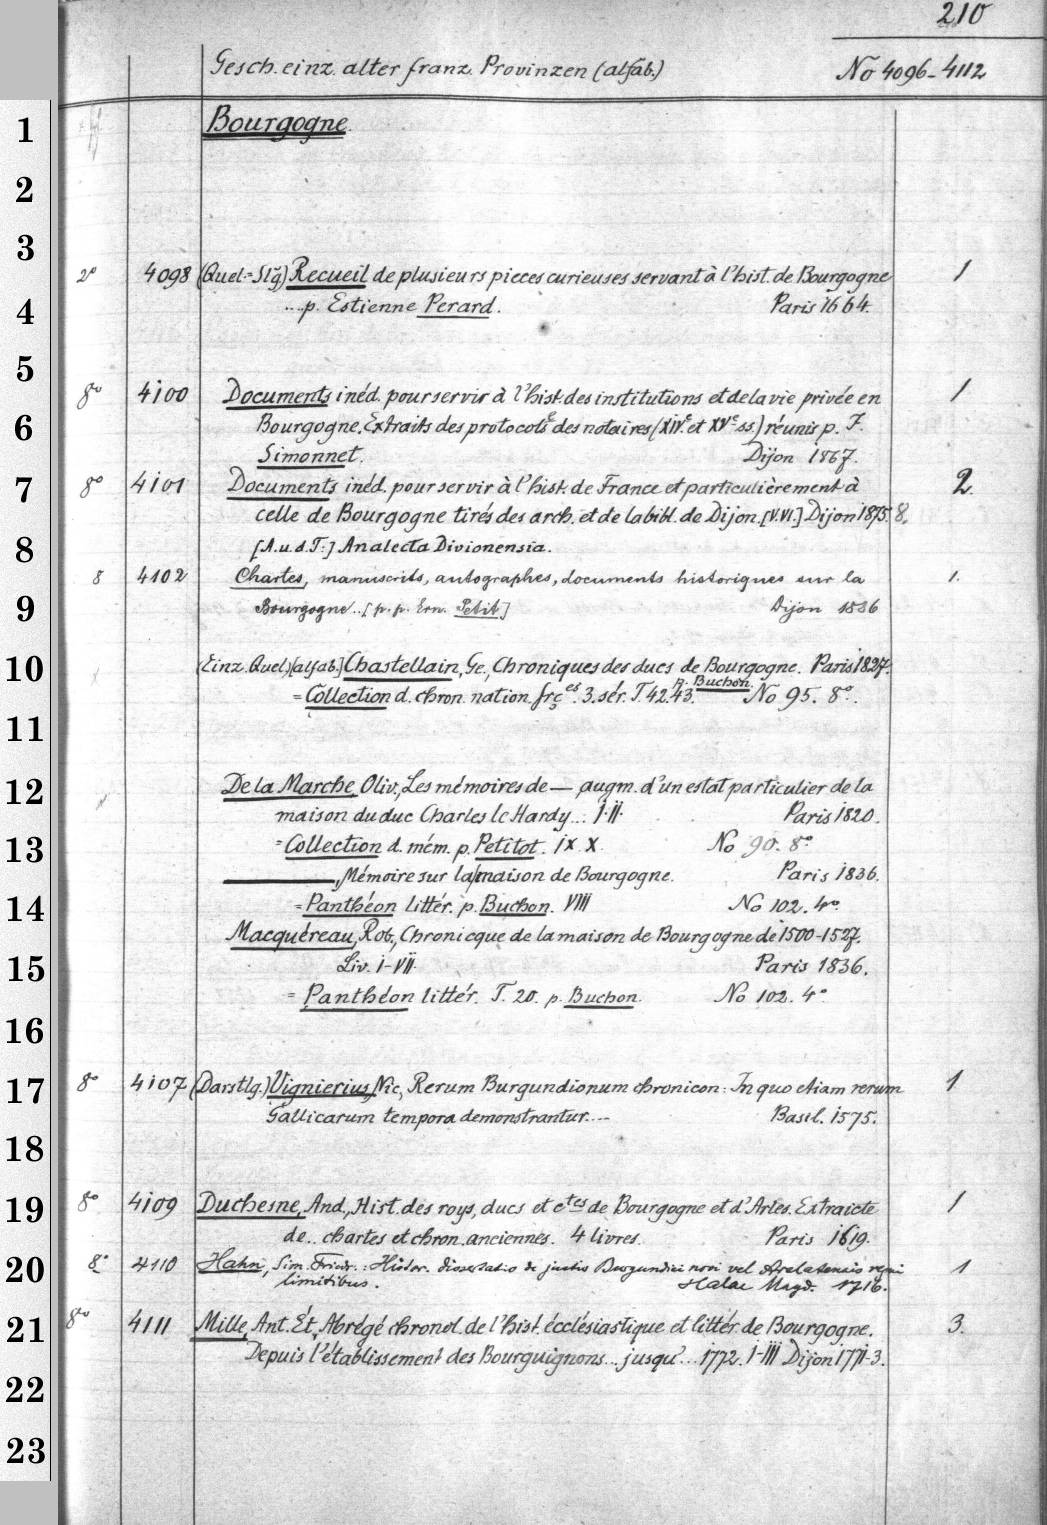 210
Gesch. einz. alter franz. Provinzen (alfab.) No 4096-4112
1 Bourgogne.
2
3
2° 4098 (Quel.=Slg) Recueil de plusieurs pieces curieuses servant à l'hist. de Bourgogne 1
4 ...p. Estienne Perard. Paris 1664.
5
8vo 4100 Documents inéd. pour servir à l'hist. des institutions et de la vie privée en 1
6 Bourgogne. Extraits des protocols des notaires (XIVe et XVe ss.) réunis p. F.
Simonnet. Dijon 1867.
7 8° 4101 Documents inéd. pour servir à l'hist. de France et particulièrement à 2
celle de Bourgogne tirés des arch. et de la bibl. de Dijon. [V.VI.] Dijon 1875. 8.
8 [A.u.d.T:] Analecta Divionensia.
8 4102 Chartes, manuscrits, autographes, documents historiques sur la 1.
9 Bourgogne.. [p. p. Ern. Petit] Dijon 1886
10 (Einz. Quel.) [alfab.] Chastellain, Ge, Chroniques des ducs de Bourgogne. Paris 1827.
= Collection d. chron. nation. frçes. 3. sér. T. 42.43. p. Buchon. No 95. 8°.
11
12 De la Marche, Oliv., Les mémoires de — augm. d'un estat particulier de la
maison du duc Charles le Hardy... I·II· Paris 1820.
13 = Collection d. mém. p. Petitot. IX X. No 90. 8°
———, Mémoire sur la maison de Bourgogne. Paris 1836.
14 = Panthéon littér. p. Buchon. VIII No 102. 4°.
Macquéreau, Rob., Chronicque de la maison de Bourgogne de 1500-1527.
15 Liv. I-VII. Paris 1836.
= Panthéon littér. T. 20. p. Buchon. No 102. 4°
16
17 8° 4107 (Darstlg.) Vignierius, Nic, Rerum Burgundionum chronicon: In quo etiam rerum 1
Gallicarum tempora demonstrantur.... Basil. 1575.
18
19 8° 4109 Duchesne, And., Hist. des roys, ducs et ctes de Bourgogne et d'Arles. Extraicte 1
de.. chartes et chron. anciennes. 4 livres. Paris 1619.
20 8° 4110 Hahn, Sim. Friedr.: Histor. dissertatio de justis Burgundici novi vel Arelatensis regni 1
limitibus. Halae Magd. 1716.
21 8vo 4111 Mille, Ant. Ét., Abrégé chronol. de l'hist. écclésiastique et littér. de Bourgogne. 3.
Depuis l'établissement des Bourguignons... jusqu'... 1772. I-III Dijon 1771-3.
22
23